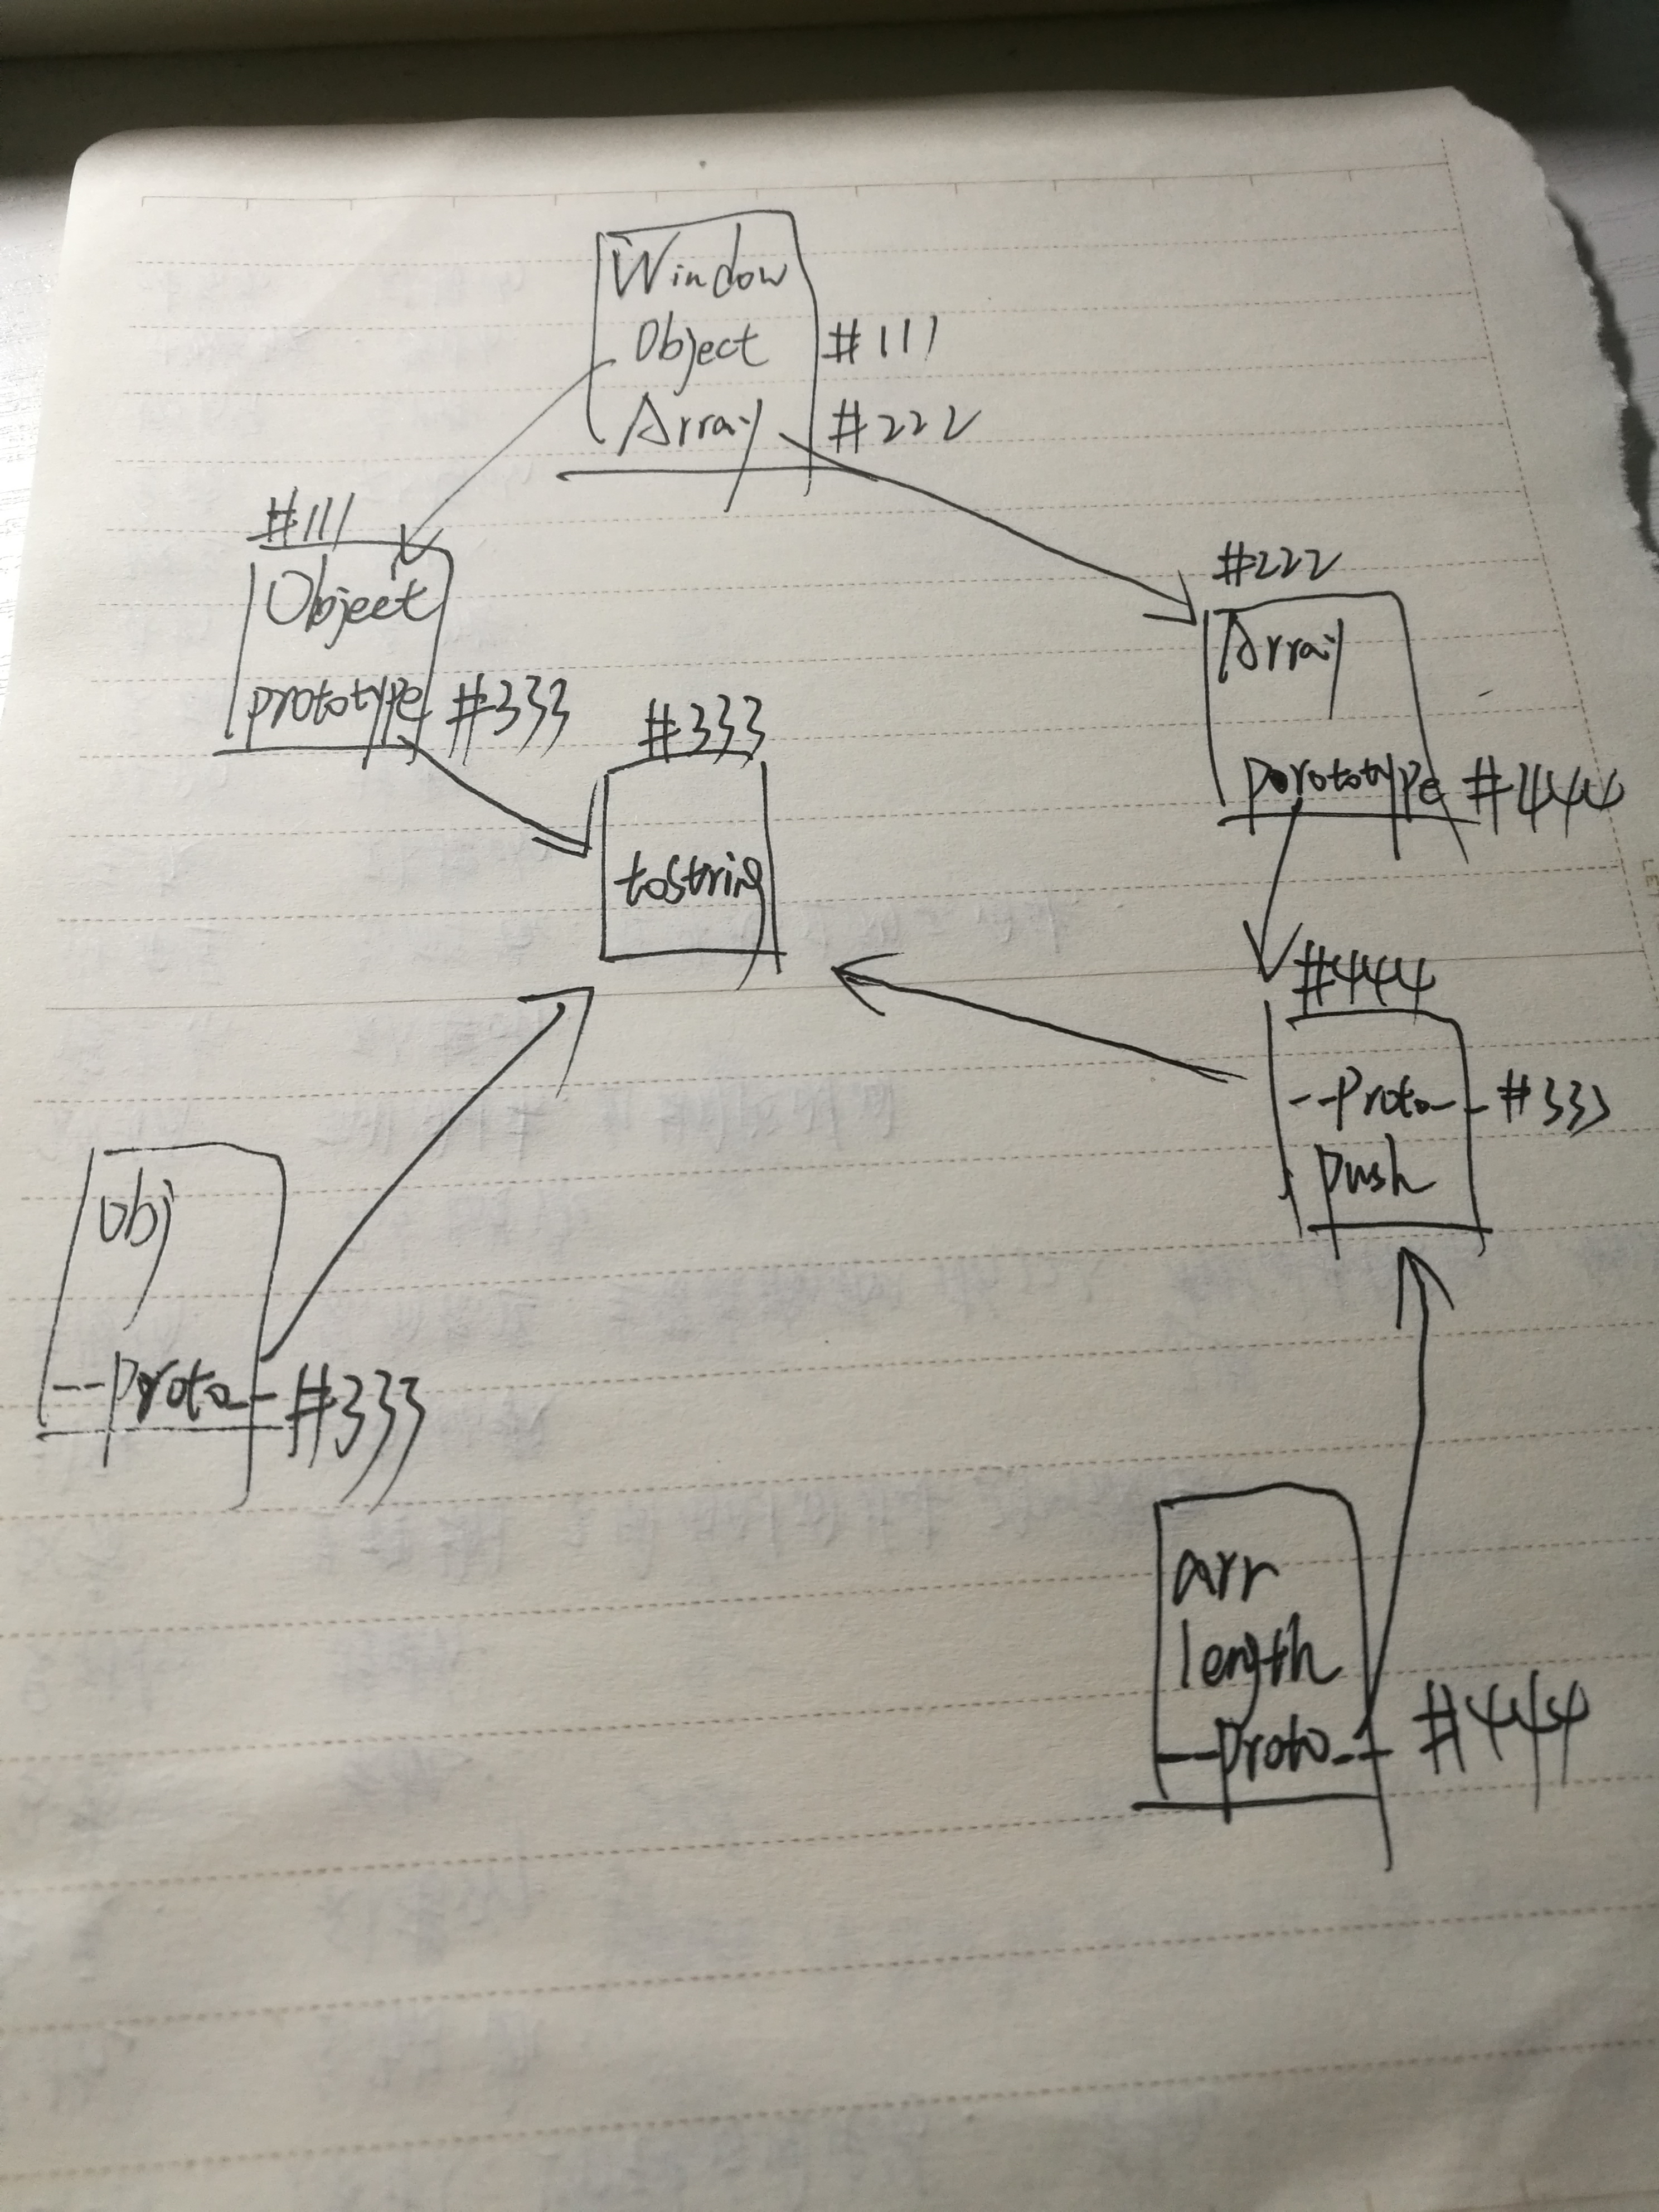 Window
Object #111
Array #222
#111
Object
prototype #333
#333
toString
#222
Array
porototype #444
#444
--Proto-- #333
push
obj
--proto- #333
arr
length
--proto-- #444